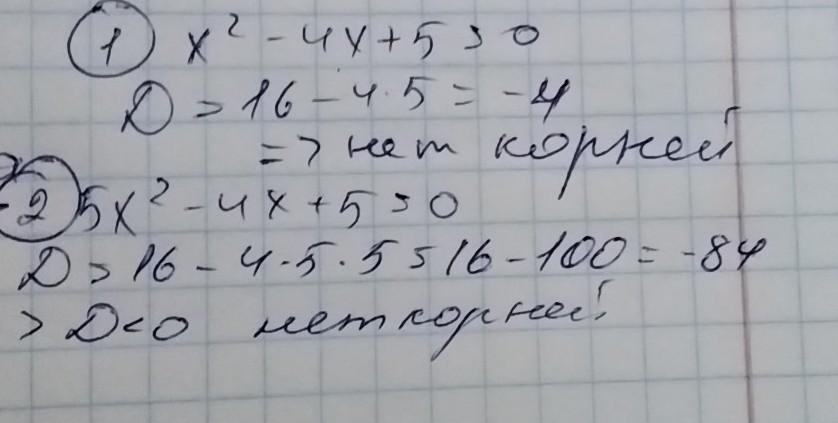 1 x² - 4x + 5 = 0
D = 16 - 4·5 = -4
=> нет корней
2 5x² - 4x + 5 = 0
D = 16 - 4·5·5 = 16 - 100 = -84
> D<0 нет корней